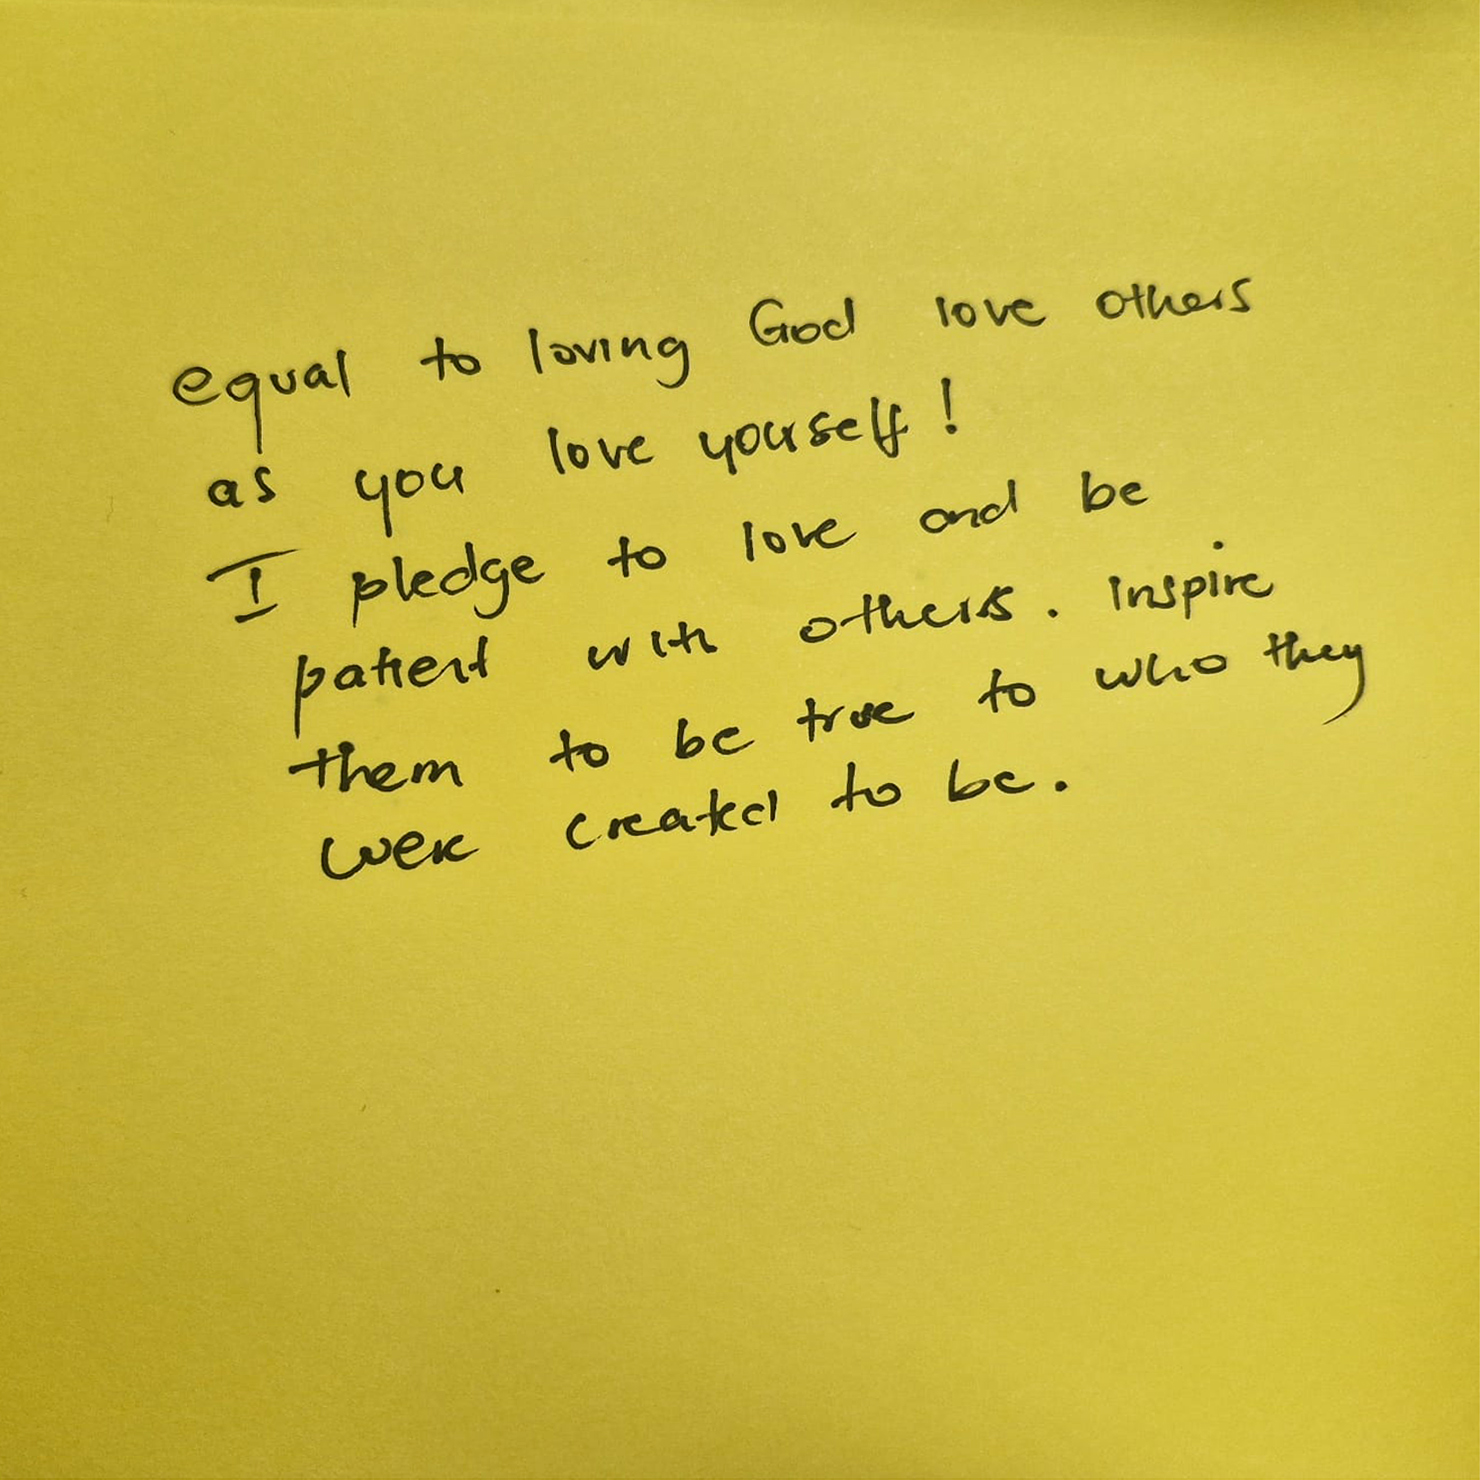 equal to loving God love others
as you love yourself!
I pledge to love and be
patient with others. inspire
them to be true to who they
were created to be.